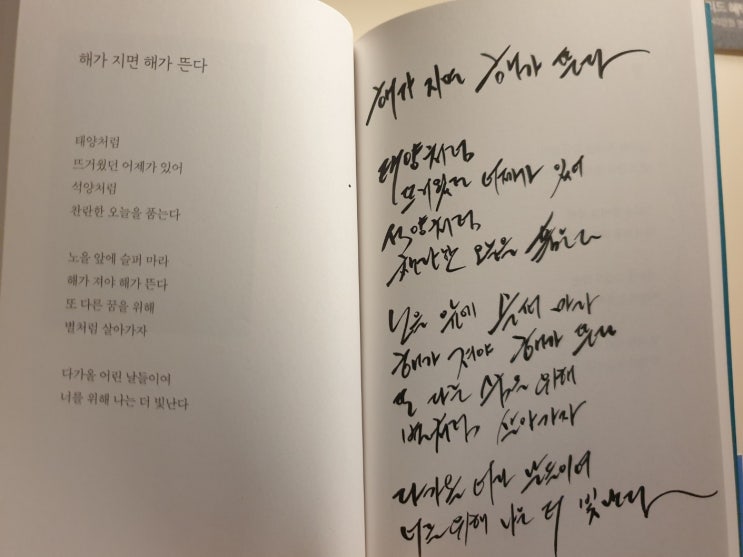 해가 지면 해가 뜬다
태양처럼
뜨거웠던 어제가 있어
석양처럼
찬란한 오늘을 품는다
노을 앞에 슬퍼 마라
해가 져야 해가 뜬다
또 다른 꿈을 위해
별처럼 살아가자
다가올 어린 날들이여
너를 위해 나는 더 빛난다
해가 지면 해가 뜬다
태양처럼
뜨거웠던 어제가 있어
석양처럼
찬란한 오늘을 품는다
노을 앞에 슬퍼 마라
해가 져야 해가 뜬다
또 다른 꿈을 위해
별처럼 살아가자
다가올 어린 날들이여
너를 위해 나는 더 빛난다